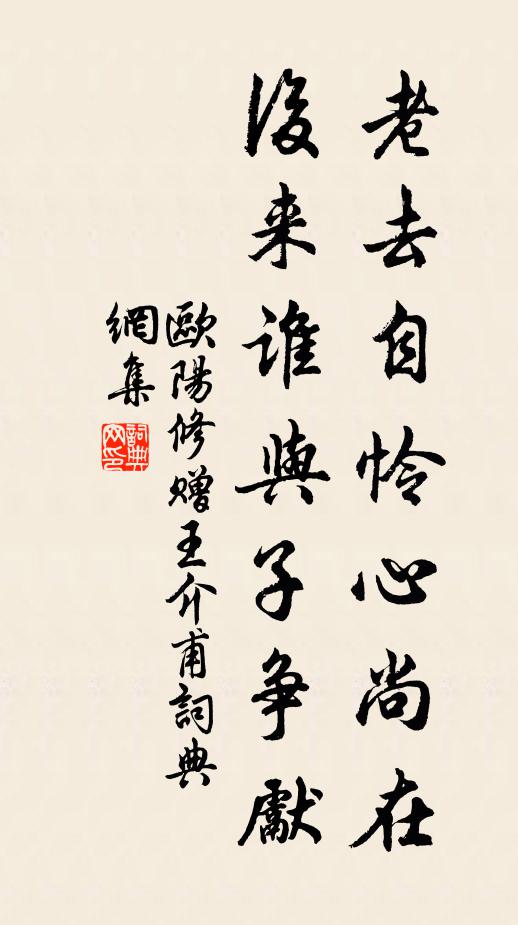 老去自怜心尚在
後来誰與子争獻
歐陽修贈王介甫詞典
網集
詞典
网印